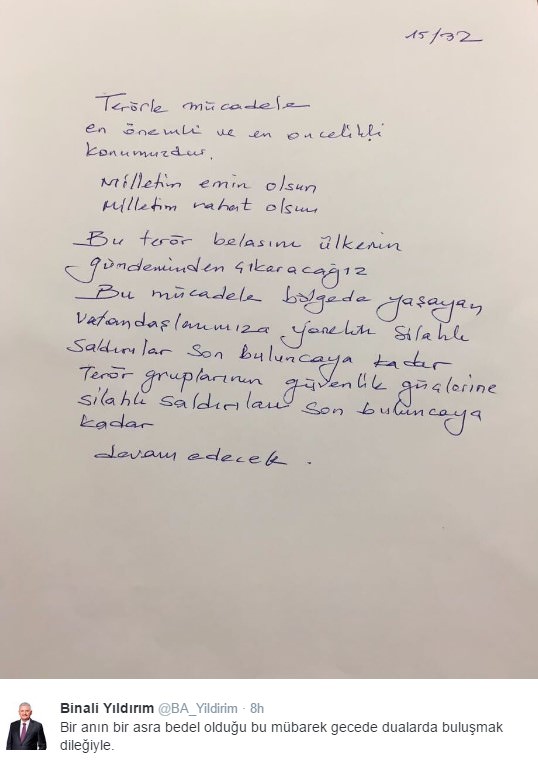 15/32
Terörle mücadele
en önemli ve en öncelikli
konumuzdur.
Milletim emin olsun
Milletim rahat olsun
Bu terör belasını ülkenin
gündeminden çıkaracağız
Bu mücadele bölgede yaşayan
vatandaşlarımıza yönelik silahlı
saldırılar son buluncaya kadar
Terör gruplarının güvenlik güçlerine
silahlı saldırıları son buluncaya
kadar
devam edecek.
Binali Yıldırım @BA_Yildirim · 8h
Bir anın bir asra bedel olduğu bu mübarek gecede dualarda buluşmak
dileğiyle.